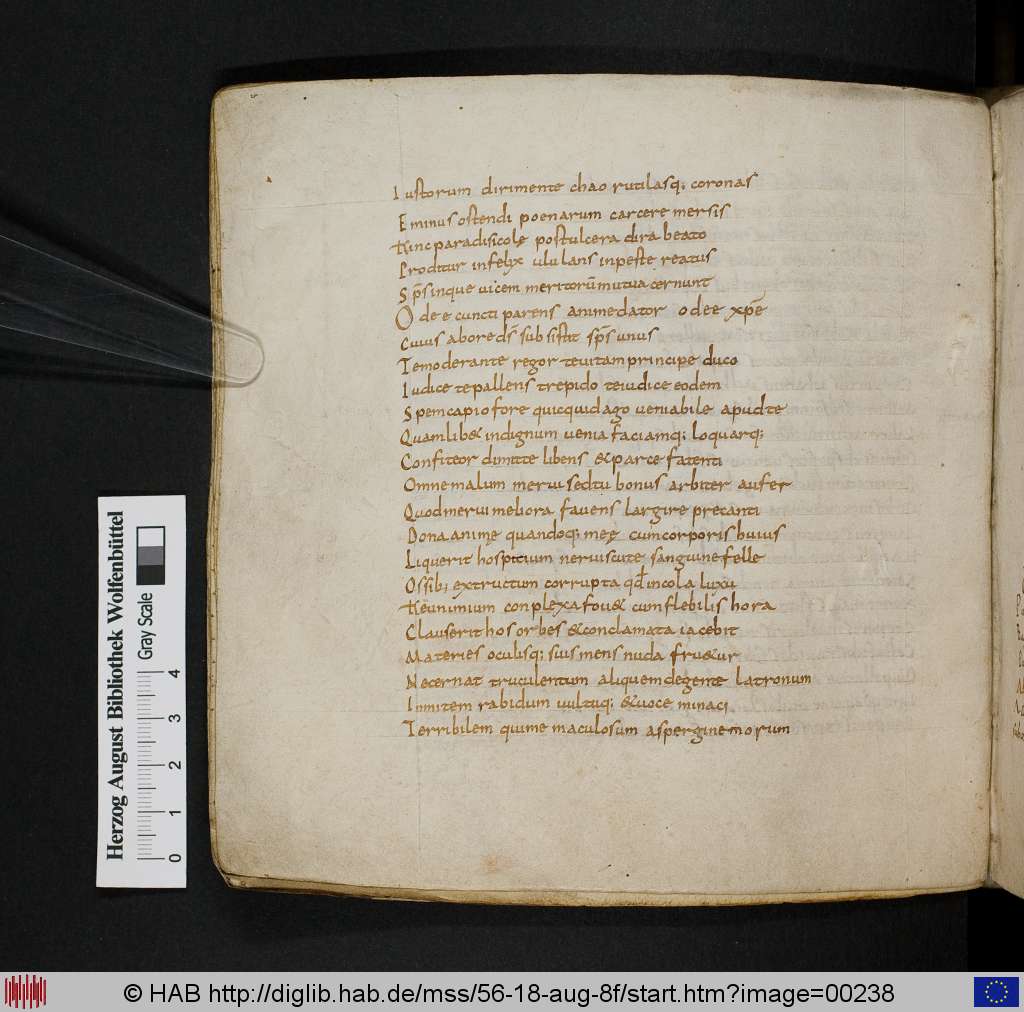 Iustorum dirimente chao rutilasq; coronas
Eminus ostendi poenarum carcere mersis
Hinc paradisicolę post ulcera dira beato
Proditur infelyx ululans inpeste reatus
Sp̄s inque uicem meritorū mutua cernunt
O dee cuncti parens animedator o dee xp̄e
Cuius abore ds̄ subsistit sp̄s unus
Te moderante regor te uitam principe duco
Iudice te pallens trepido te iudice eodem
Spem capio fore quicquid ago ueniabile apud te
Quamlib& indignum uenia faciamq; loquarq;
Confiteor dimitte libens & parce fatenti
Omne malum merui sed tu bonus arbiter aufer
Quod merui meliora fauens largire precanti
Dona animę quandoq; meę cum corporis huius
Liquerit hospitium neruis cute sanguine felle
Ossib; extructum corrupta qđ incola luxu
Heu nimium conplexa fou& cum flebilis hora
Clauserit hos orbes & conclamata iacebit
Materies oculisq; suis mens nuda fru&ur
Ne cernat truculentum aliquem de gente latronum
Inmitem rabidum uultuq; & uoce minaci
Terribilem qui me maculosum aspergine morum
Herzog August Bibliothek Wolfenbüttel
Gray Scale
0 1 2 3 4
© HAB http://diglib.hab.de/mss/56-18-aug-8f/start.htm?image=00238